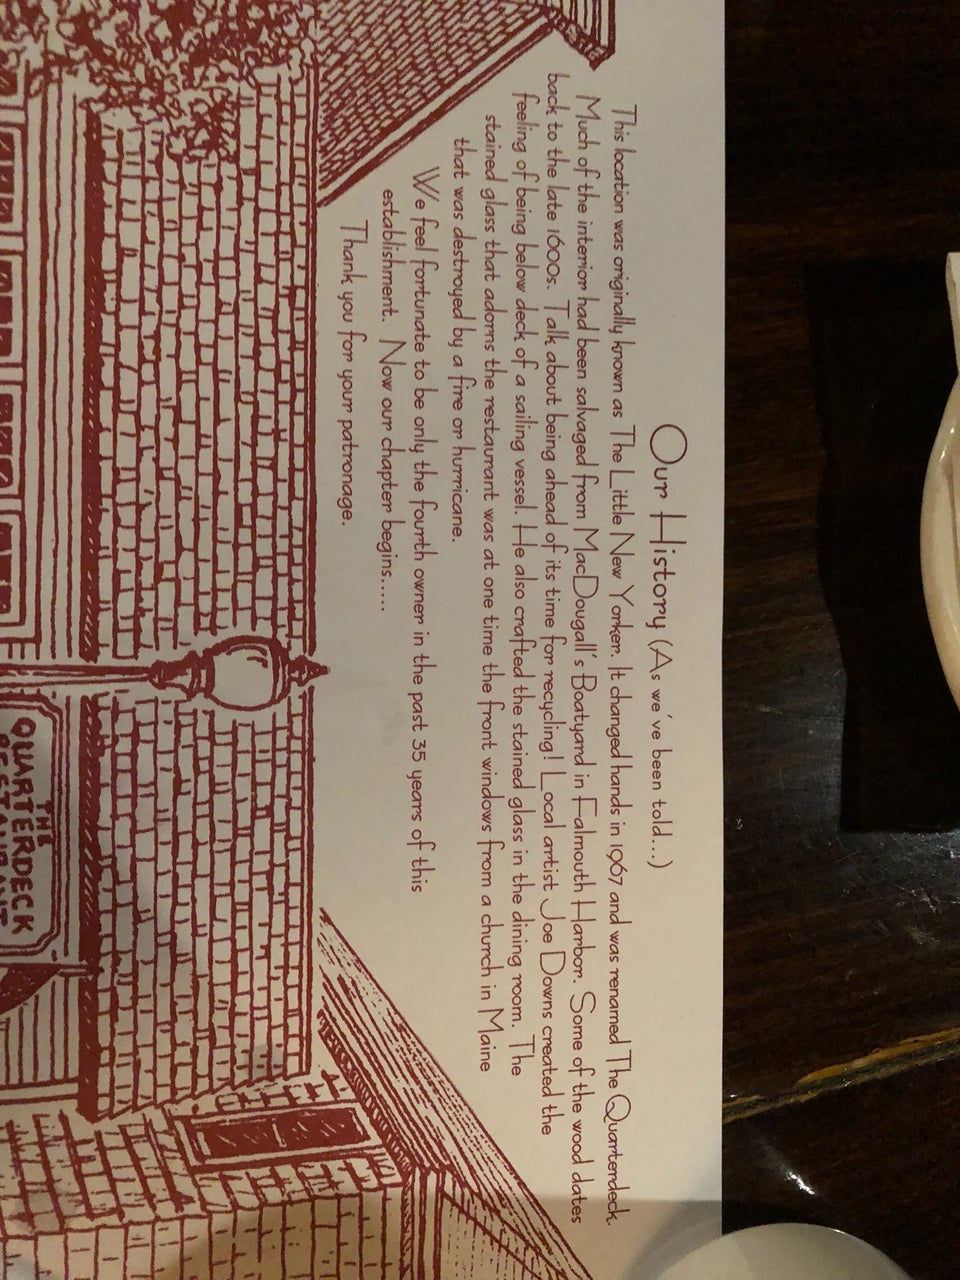 Our History (As we've been told...)
This location was originally known as The Little New Yorker. It changed hands in 1967 and was renamed The Quarterdeck.
Much of the interior had been salvaged from MacDougall's Boatyard in Falmouth Harbor. Some of the wood dates
back to the late 1600s. Talk about being ahead of its time for recycling! Local artist Joe Downs created the
feeling of being below deck of a sailing vessel. He also crafted the stained glass in the dining room. The
stained glass that adorns the restaurant was at one time the front windows from a church in Maine
that was destroyed by a fire or hurricane.
We feel fortunate to be only the fourth owner in the past 35 years of this
establishment. Now our chapter begins.....
Thank you for your patronage.
THE
QUARTERDECK
RESTAURANT